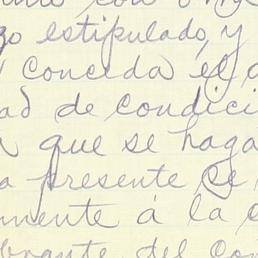 con
go estipulado, y
conceda el
ad de condici
que se haga
a presente se
mente á la
brante del con